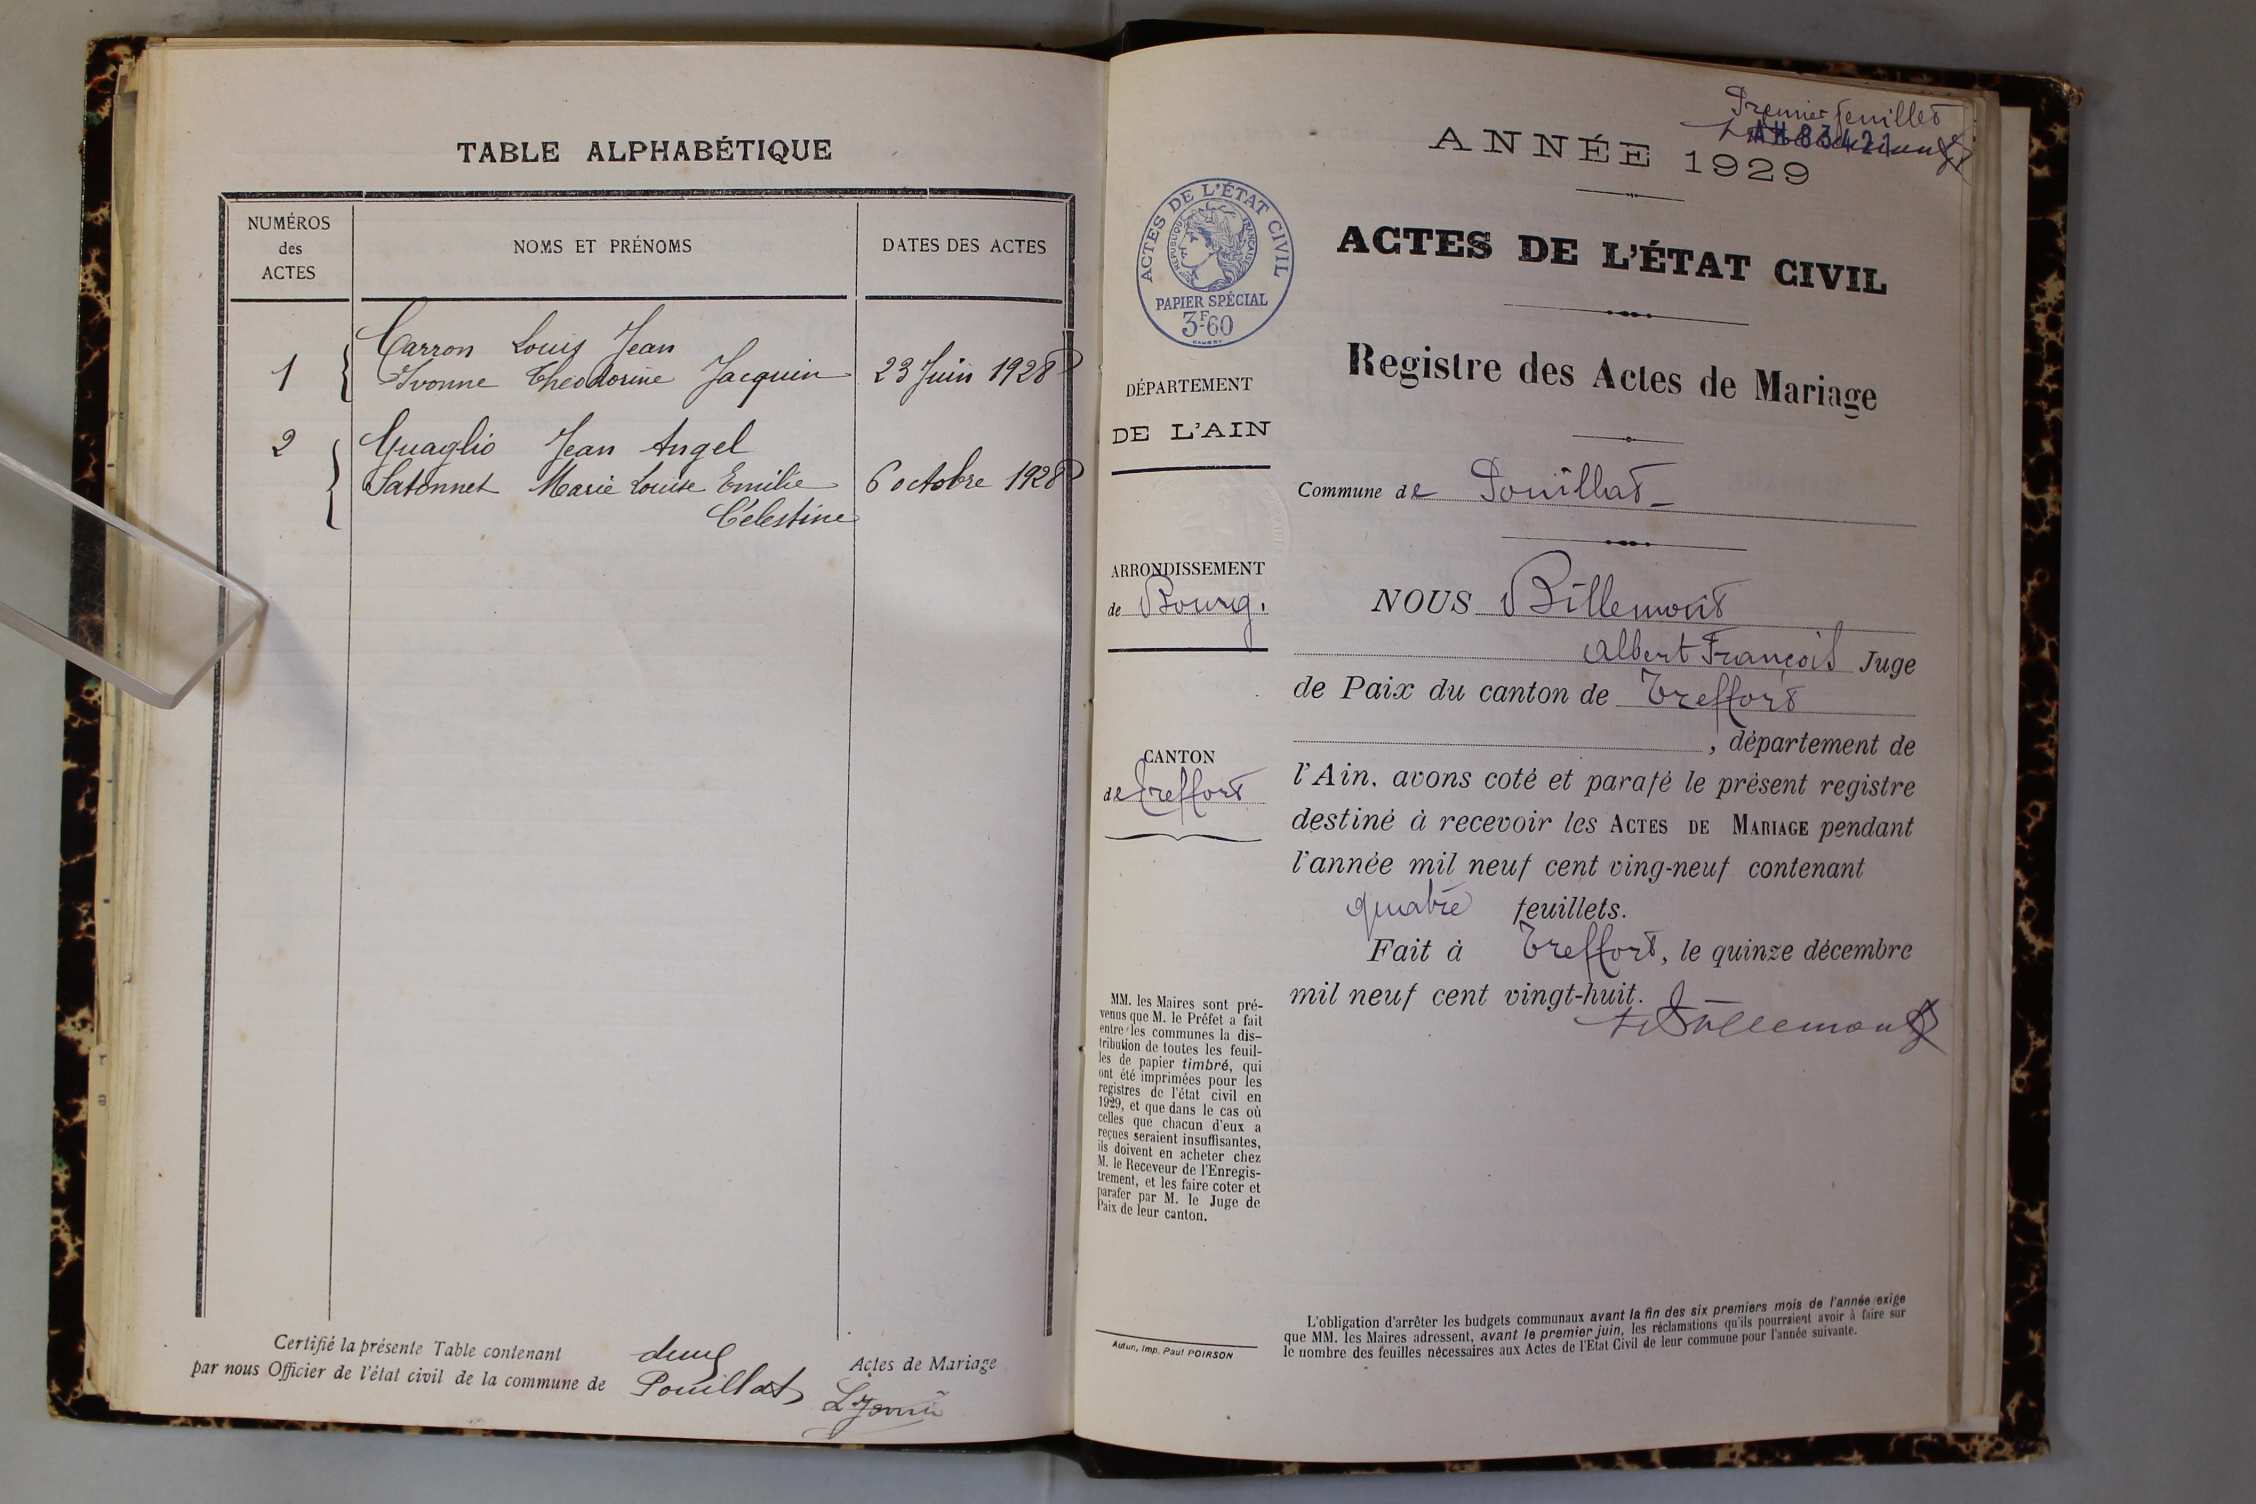 TABLE ALPHABÉTIQUE
NUMÉROS
des
ACTES
NOMS ET PRÉNOMS
DATES DES ACTES
Carron Louis Jean
1 Yvonne Théodorine Jacquin 23 Juin 1928
2 Guaglio Jean Angel
Satonnet Marie Louise Emilie 6 octobre 1928
Célestine
Certifié la présente Table contenant deux Actes de Mariage
par nous Officier de l'état civil de la commune de Pouillat
Premier feuillet
AH 83421
ANNÉE 1929
ACTES DE L'ÉTAT CIVIL
RÉPUBLIQUE FRANÇAISE
PAPIER SPÉCIAL
3F.60
ACTES DE L'ÉTAT CIVIL
Registre des Actes de Mariage
DÉPARTEMENT
DE L'AIN
Commune de Pouillat
ARRONDISSEMENT
de Bourg.
CANTON
de Treffort
NOUS Billemont
Albert François Juge
de Paix du canton de Treffort
, département de
l'Ain, avons coté et parafé le présent registre
destiné à recevoir les ACTES DE MARIAGE pendant
l'année mil neuf cent ving-neuf contenant
quatre feuillets.
Fait à Treffort, le quinze décembre
mil neuf cent vingt-huit.
Billemont
MM. les Maires sont pré-
venus que M. le Préfet a fait
entre les communes la dis-
tribution de toutes les feuil-
les de papier timbré, qui
ont été imprimées pour les
registres de l'état civil en
1929, et que dans le cas où
celles que chacun d'eux a
reçues seraient insuffisantes,
ils doivent en acheter chez
M. le Receveur de l'Enregis-
trement, et les faire coter et
parafer par M. le Juge de
Paix de leur canton.
Autun, Imp. Paul POIRSON
L'obligation d'arrêter les budgets communaux avant la fin des six premiers mois de l'année exige
que MM. les Maires adressent, avant le premier juin, les réclamations qu'ils pourraient avoir à faire sur
le nombre des feuilles nécessaires aux Actes de l'Etat Civil de leur commune pour l'année suivante.